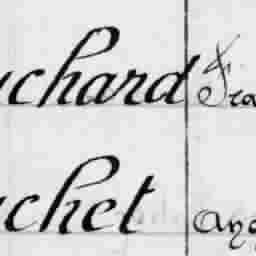 uchard Fra
uchet Ang